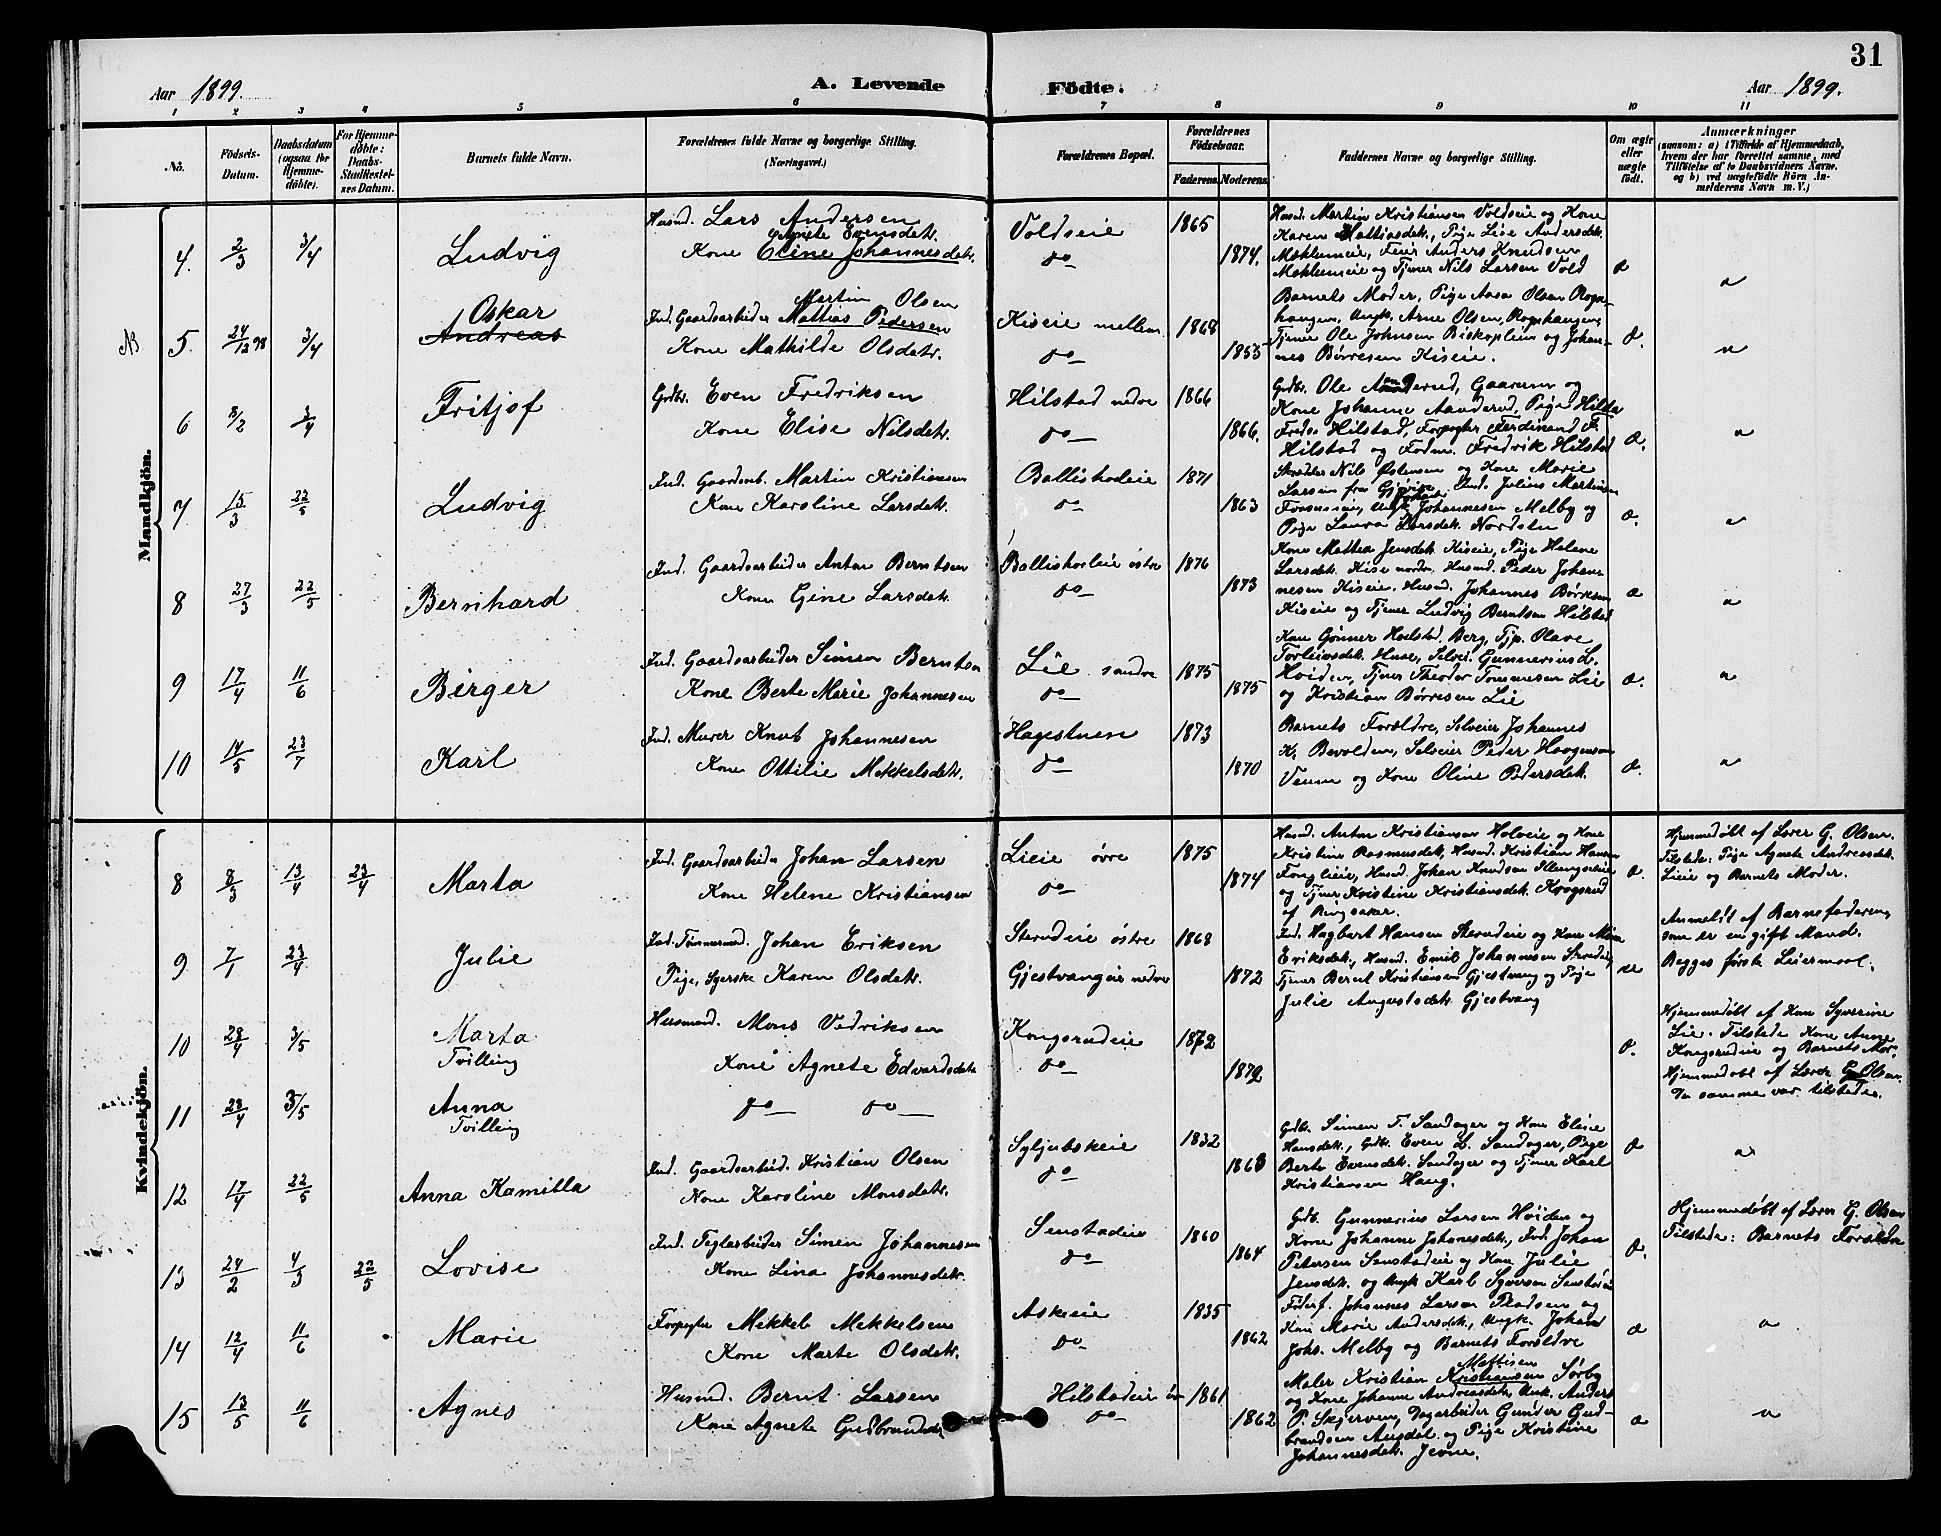 31
Aar 1899.
A. Levende Födte.
Aar 1899.
1 2 3 4 5 6 7 8 9 10 11
No.
Födsels-Datum.
Daabsdatum (ogsaa for Hjemme-döbte).
For Hjemme-döbte: Daabs-Stadfæstel-ses Datum.
Barnets fulde Navn.
Forældrenes fulde Navne og borgerlige Stilling. (Næringsvei.)
Forældrenes Bopæl.
Forældrenes Födselsaar.
Faderens. Moderens.
Faddernes Navne og borgerlige Stilling.
Om ægte eller uægte födt.
Anmærkninger
(saasom: a) i Tilfælde af Hjemmedaab,
hvem der har forrettet samme, med
Tilföielse af to Daabsvidners Navne,
og b) ved uægtefödte Börn An-
melderens Navn m. V.)
Mandkjön.
4. 2/3 3/4 Ludvig
Husmd. Lars Andersen
Agnete Evensdtr.
Kone Eline Johannesdtr.
Voldseie 1865
do 1874.
Husmd. Martin Kristiansen Voldseie og Kone
Karen Mattiasdtr., Pige Lise Andersdtr.
Mæhlumeie, Feier Anders Knudsen
Mæhlumeie og Tjener Nils Larsen Vold
NB 5. 24/12 98 3/4 Oskar
Andreas
Martin Olsen
Ind. Gaardsarbeider Mattias Pedersen
Kone Mathilde Olsdatr.
Kiseie mellem 1868
do 1855
Barnets Moder, Pige Aasa Olsen Rogn-
haugen, Ungk. Arne Olsen, Rognhaugen,
Tjener Ole Johnsen Biskoplien og Johan-
nes Børresen Kiseie.
6 8/2 3/4 Fritjof
Grdbr. Even Fredriksen
Kone Elise Nilsdtr.
Hilstad nedre 1866
do 1866.
Grdbr. Ole Aanderud, Gaarum og
Kone Johanne Aanderud, Pige Hilda
Fredr. Hilstad, Forpagter Ferdinand F.
Hilstad og Fødm. Fredrik Hilstad
7 15/3 22/5 Ludvig
Ind. Gaardsarb. Martin Kristiansen
Kone Karoline Larsdtr.
Ballisholeie 1871
do 1863
Skrædder Nils Østensen og Kone Marie
Larsen fra Gjøvik, Ind. Julius Martinsen
Johan
Ungk. Johannesen Melby og
Pige Laura Larsdtr. Nordsten
8 27/3 22/5 Bernhard
Ind. Gaardsarbeider Anton Berntsen
Kone Gine Larsdtr.
Ballisholeie østre 1876
do 1873
Kone Mattea Jensdtr. Kiseie, Pige Helene
Larsdtr. Kise nordre, Husmd. Peder Johan-
nesen Kiseie, Husmd. Johannes Børresen
Kiseie og Tjener Ludvig Berntsen Hilstad
9 17/4 11/6 Birger
Ind. Gaardsarbeider Simen Berntsen
Kone Berte Marie Johannesen
Lie søndre 1875
do 1875
Kone Gønner Hoelstad, Berg, Tjp. Olave
Torleivsdtr. Huse, Selvei. Gunnerius L.
Høiden, Tjener Theodor Tommesen Lie
og Kristian Børresen Lie
10 14/5 23/7 Karl
Ind. Murer Knut Johannesen
Kone Ottilie Mekkelsdtr.
Hagestuen 1873
do 1870
Barnets Forældre, Selveier Johannes
K. Bævolden, Selveier Peder Haagensen
Veum og Kone Oline Pedersdtr.
Kvindekjön.
8 8/3 13/4 23/4 Marta
Ind. Gaardsarbeider Johan Larsen
Kone Helene Kristiansen
Lieie øvre 1875
do 1874
Husmd. Anton Kristiansen Holveie og Kone
Kristine Rasmusdtr., Husmd. Kristian Hansen
Fonglieie, Husmd. Johan Knudsen
og Tjener Kristine Kristiansdtr. Krogsrud
af Ringsaker.
Hjemmedøbt af Lærer G. Olsen.
Tilstede: Pige Agnete Andreasdtr.
Lieie og Barnets Moder.
9 7/1 23/4 Julie
Ind. Tømmermd. Johan Eriksen
Pige, Syerske Karen Olsdatr.
Sterudeie østre 1868
Gjestvangeie nedre 1872
Ind. Hagbart Hansen Sterudeie og Kone Mina
Eriksdtr., Husmd. Emil Johannsen Sterudeie,
Tjener Bernt Kristiansen Gjestvang og Pige
Julie Augustsdtr. Gjestvang
Anmeldt af Barnefaderen,
som er en gift Mand.
Begges første Leiermaal.
10 28/4 3/5 Marta
Tvilling
Husmand. Mons Vedriksen
Kone Agnete Edvardsdtr
Kongsrudeie 1872
do 1872
Hjemmedøbt af Kone Syverine
Lie. Tilstede Kone Anne
Kongsrudeie og Barnets Mor.
11 28/4 3/5 Anna
Tvilling
do do
Hjemmedøbt af Lærer G. Olsen.
De samme var tilstede.
12 17/4 22/5 Anna Kamilla
Ind. Gaardsarbeid. Kristian Olsen
Kone Karoline Monsdatr.
Syljubskeie 1832
do 1863
Gdb. Simen T. Sandager og Kone Elise
Hansdtr., Gdb. Even L. Sandager, Pige
Berte Evensdtr. Sandager og Tjener Karl
Kristiansen Haug.
13 24/2 4/3 22/5 Lovise
Ind. Teglarbeider Simen Johannesen
Kone Lina Johannesdtr.
Senstadeie 1860
do 1864
Gdb. Gunnerius Larsen Høiden og
Kone Johanne Johanesdtr., Ind. Johan
Petersen Senstadeie og Kone Julie
Jensdtr. og Ungk Karl Syversen Senstadeie
Hjemmedøbt af Lærer G. Olsen
Tilstede: Barnets Forældre
14 12/4 11/6 Marie
Forpagter Mekkel Mekkelsen
Kone Marte Olsdatr.
Askeie 1835
do 1862
Føderf. Johannes Larsen Pladsen og
Kone Marie Andersdtr., Ungk. Johan
Johs. Melby og Barnets Forældre
15 13/5 11/6 Agnes
Husmd. Bernt Larsen
Kone Agnete Gudbrandsdtr
Hilstadeie 1861
do 1862
Mattisen
Maler Kristian Kristiansen Sørby
og Kone Johanne Andreasdtr., Unk. Anders
P. Skjerven, Dagarbeider Gunder Gud-
brandsen Ausdal og Pige Kristine
Johannesdtr. Jevne.